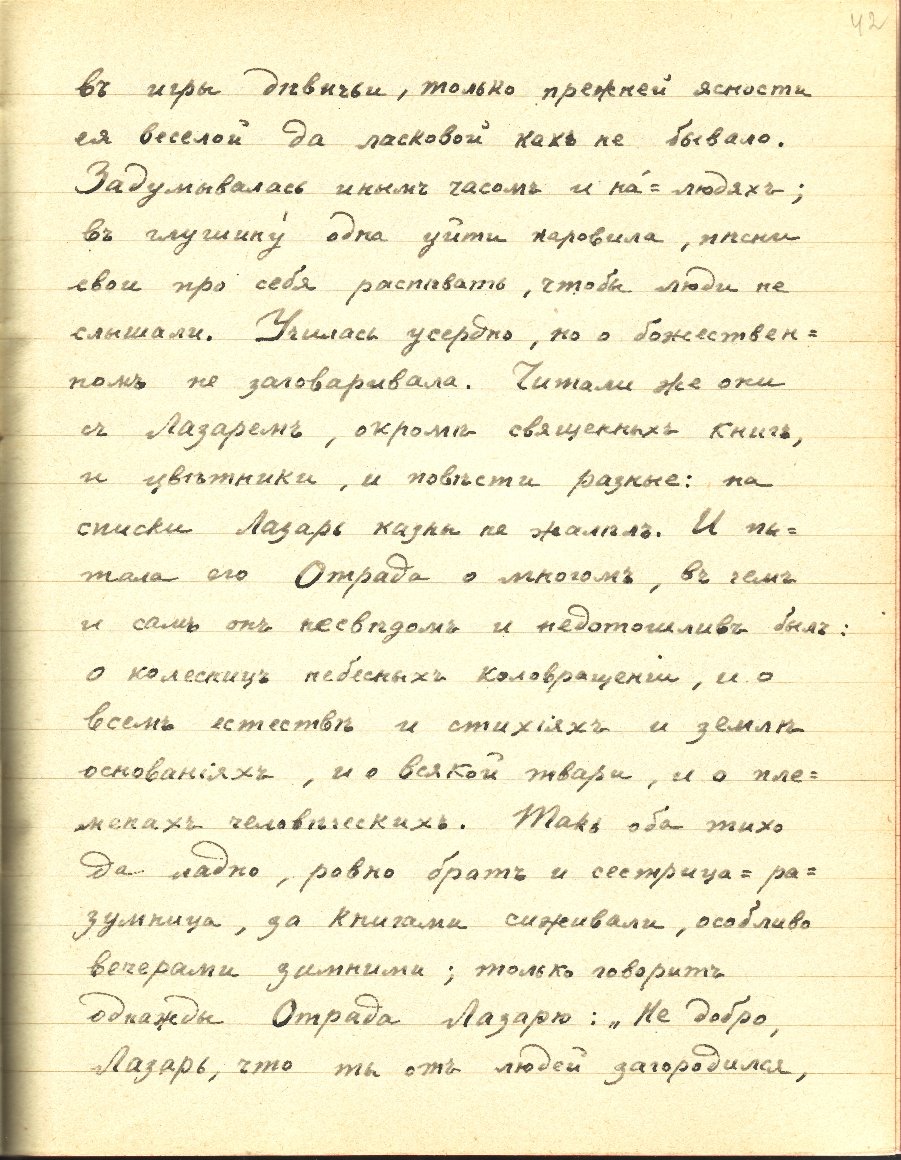 42
въ игры дѣвичьи, только прежней ясности
ея веселой да ласковой какъ не бывало.
Задумывалась инымъ часомъ и на́=людяхъ;
въ глушину́ одна уйти норовила, пѣсни
свои про себя распѣвать, чтобы люди не
слышали. Училась усердно, но о божествен=
номъ не заговаривала. Читали же они
съ Лазаремъ, окромѣ священныхъ книгъ,
и цвѣтники, и повѣсти разные: на
списки Лазарь казны не жалѣлъ. И пы=
тала его Отрада о многомъ, въ чемъ
и самъ онъ несвѣдомъ и недотошливъ былъ:
о колесницъ небесныхъ коловращеніи, и о
всемъ естествѣ и стихіяхъ и землѣ
основаніяхъ, и о всякой твари, и о пле=
менахъ человѣческихъ. Такъ оба тихо
да ладно, ровно братъ и сестрица=ра=
зумница, за книгами сиживали, особливо
вечерами зимними; только говоритъ
однажды Отрада Лазарю: „Не добро,
Лазарь, что ты отъ людей загородился,